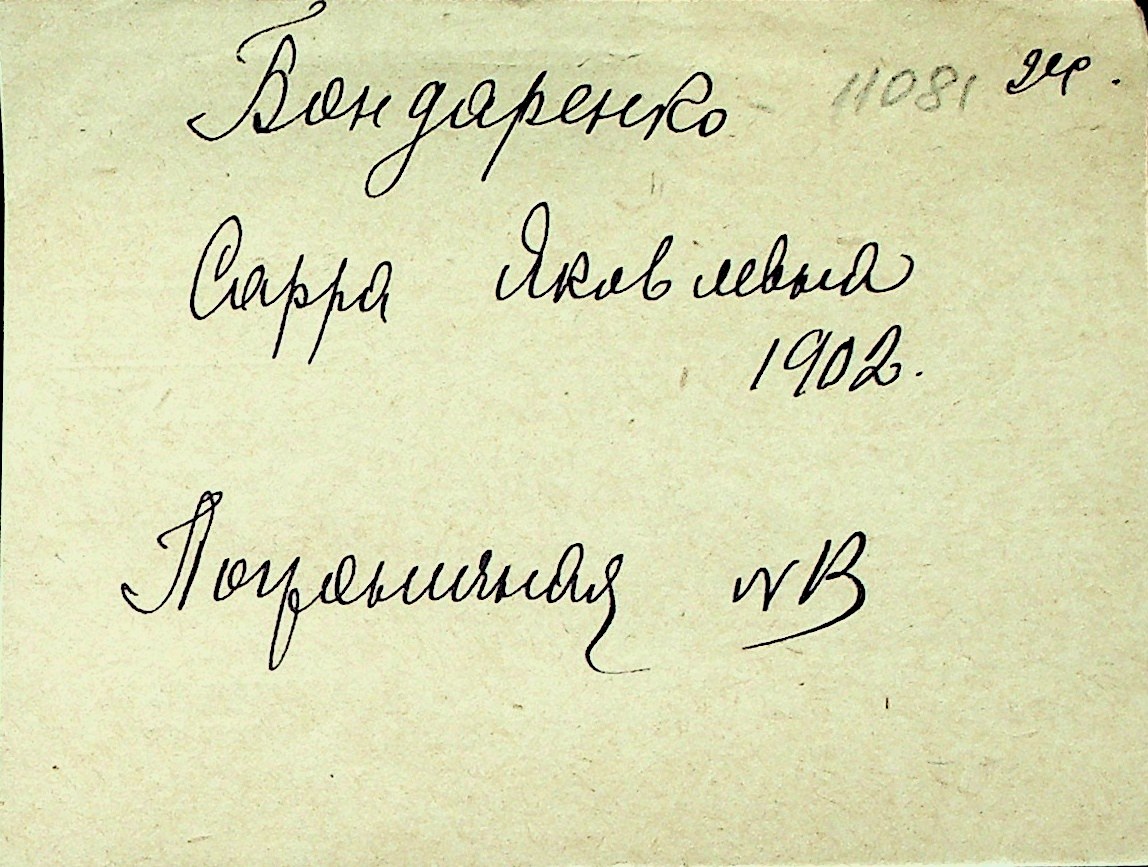 Бондаренко 11081
Сарра Яковлевна
1902.
Пограничная №